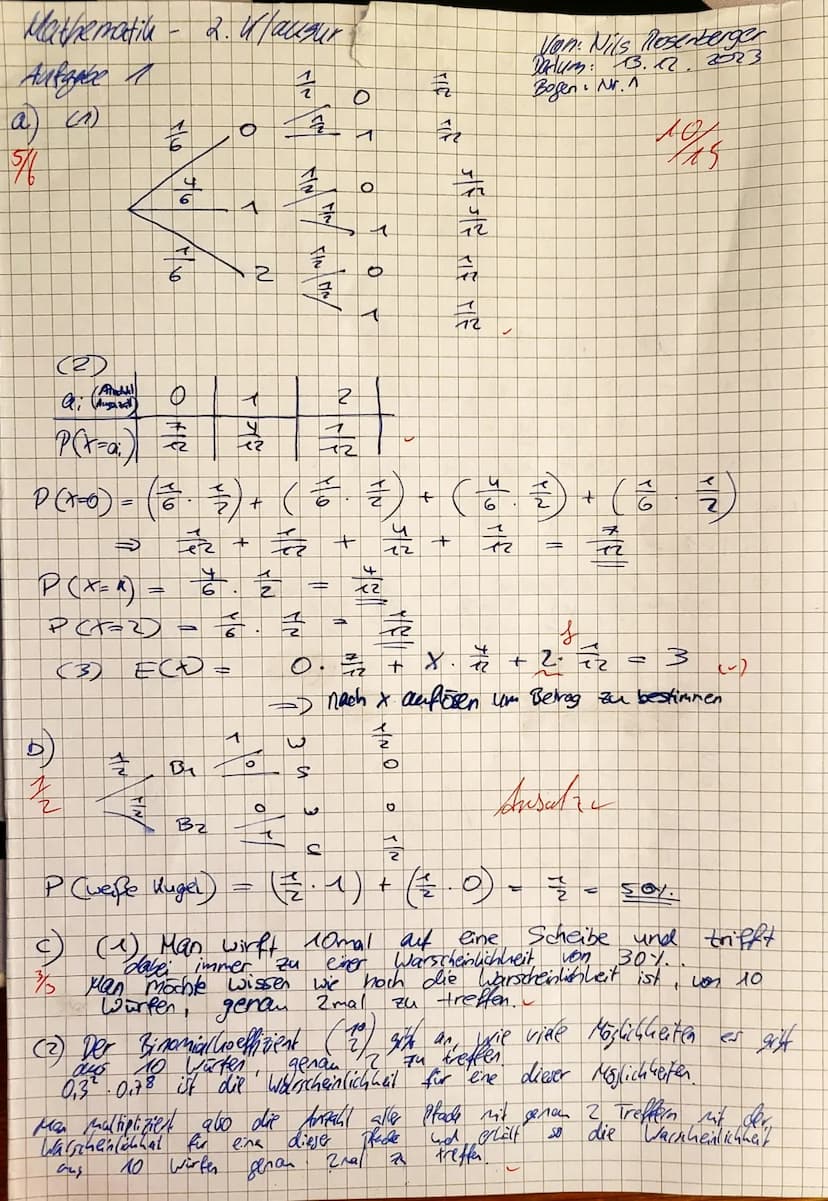 Mathematik - 2. Klausur
Von: Nils Rosenberger
Datum: 13.12.2023
Bogen: Nr.1
Aufgabe 1
10/15
a) (1)
5/6
1/6 0 1/2 0 1/12
1/2 1 1/12
4/6 1 1/2 0 4/12
1/2 1 4/12
1/6 2 1/2 0 1/12
1/2 1 1/12
(2)
ai (Anzahl Auszahl) 0 1 2
P(X=ai) 7/12 4/12 1/12
P(X=0) = (1/6 · 1/2) + (1/6 · 1/2) + (4/6 · 1/2) + (1/6 · 1/2)
⇒ 1/12 + 1/12 + 4/12 + 1/12 = 7/12
P(X=1) = 4/6 · 1/2 = 4/12
P(X=2) = 1/6 · 1/2 = 1/12
f
(3) E(X) = 0 · 7/12 + X · 4/12 + 2 · 1/12 = 3 (✓)
=> nach x auflösen um Betrag zu bestimmen
b)
1/2
1/2 B1 1 w 1/2
0 s 0
1/2 B2 0 w 0
1 s 1/2
Ansatz
P(weiße Kugel) = (1/2 · 1) + (1/2 · 0) = 1/2 = 50%
c) (1) Man wirft 10mal auf eine Scheibe und trifft
dabei immer zu einer Warscheinlichkeit von 30%.
3/3 Man möchte wissen wie hoch die Warscheinlichkeit ist, von 10
Würfen, genau 2mal zu treffen. ✓
(2) Der Binomialkoeffizient (10 2) gibt an, wie viele Möglichkeiten es gibt
aus 10 Würfen, genau 2 zu treffen.
0,3² · 0,7⁸ ist die Warscheinlichkeit für eine dieser Möglichkeiten.
Man multipliziert also die Anzahl aller Pfade mit genau 2 Treffern mit der
Warscheinlichkeit für eine dieser Pfade und erhält so die Warscheinlichkeit
aus 10 Würfen genau 2mal zu treffen. ✓